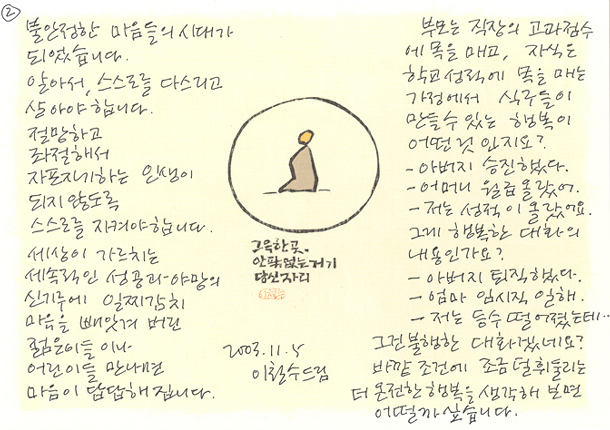 ②
불안정한 마음들의 시대가
되었습니다.
알아서, 스스로를 다스리고
살아야 합니다.
절망하고
좌절해서
자포자기하는 인생이
되지 않도록
스스로를 지켜야합니다.
세상이 가르치는
세속적인 성공과 야망의
신기루에 일찌감치
마음을 빼앗겨 버린
젊은이들이나
어린이들 만나면
마음이 답답해집니다.
고요한 곳.
안팎없는 거기
당신자리
2003.11.5
이철수드림
부모는 직장의 고과점수
에 목을 매고, 자식은
학교성적에 목을 매는
가정에서 식구들이
만들수 있는 행복이
어떤 것 인지요?
- 아버지 승진했다.
- 어머니 월급 올랐어.
- 저는 성적이 올랐어요.
그게 행복한 대화의
내용인가요?
- 아버지 퇴직했다.
- 엄마 임시직 일해.
- 저는 등수 떨어졌는데…
그건 불행한 대화겠네요?
바깥 조건에 조금 덜 휘둘리는
더 온전한 행복을 생각해 보면
어떨까 싶습니다.